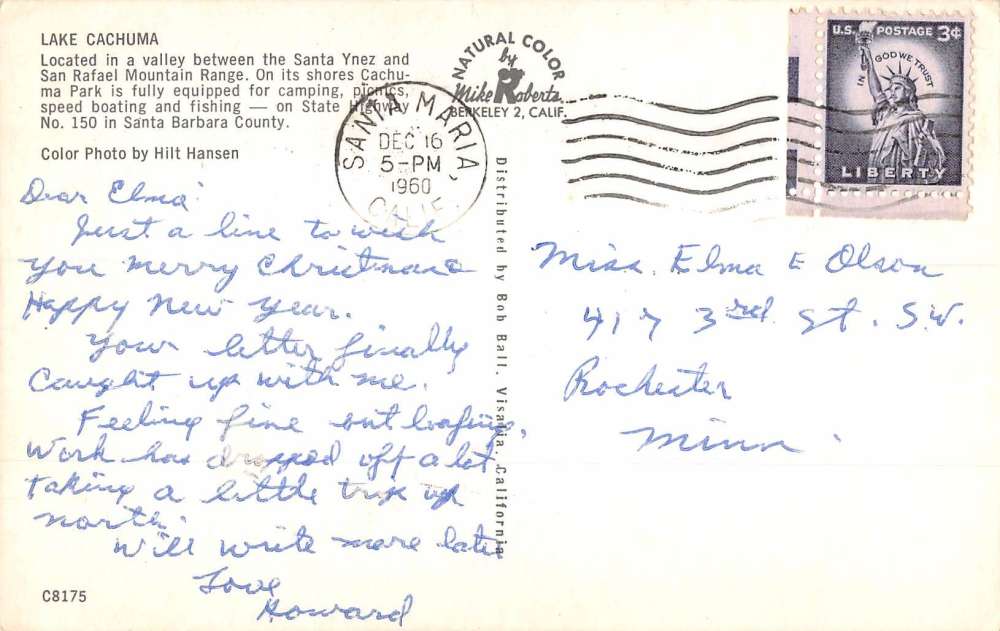 LAKE CACHUMA
Located in a valley between the Santa Ynez and
San Rafael Mountain Range. On its shores Cachu-
ma Park is fully equipped for camping, picnics,
speed boating and fishing — on State Highway
No. 150 in Santa Barbara County.
Color Photo by Hilt Hansen
NATURAL COLOR
by
Mike Roberts
BERKELEY 2, CALIF.
SANTA MARIA,
DEC 16
5-PM
1960
CALIF.
U.S. POSTAGE 3¢
IN GOD WE TRUST
LIBERTY
Dear Elma:
Just a line to wish
you merry Christmas
Happy New Year.
Your letter finally
caught up with me.
Feeling fine out loafing,
Work has dropped off a lot
taking a little trip up
north.
Will write more later
Love
Howard
C8175
Distributed by Bob Ball, Visalia, California
Miss. Elma E Olson
417 3rd St. S.W.
Rochester
Minn.